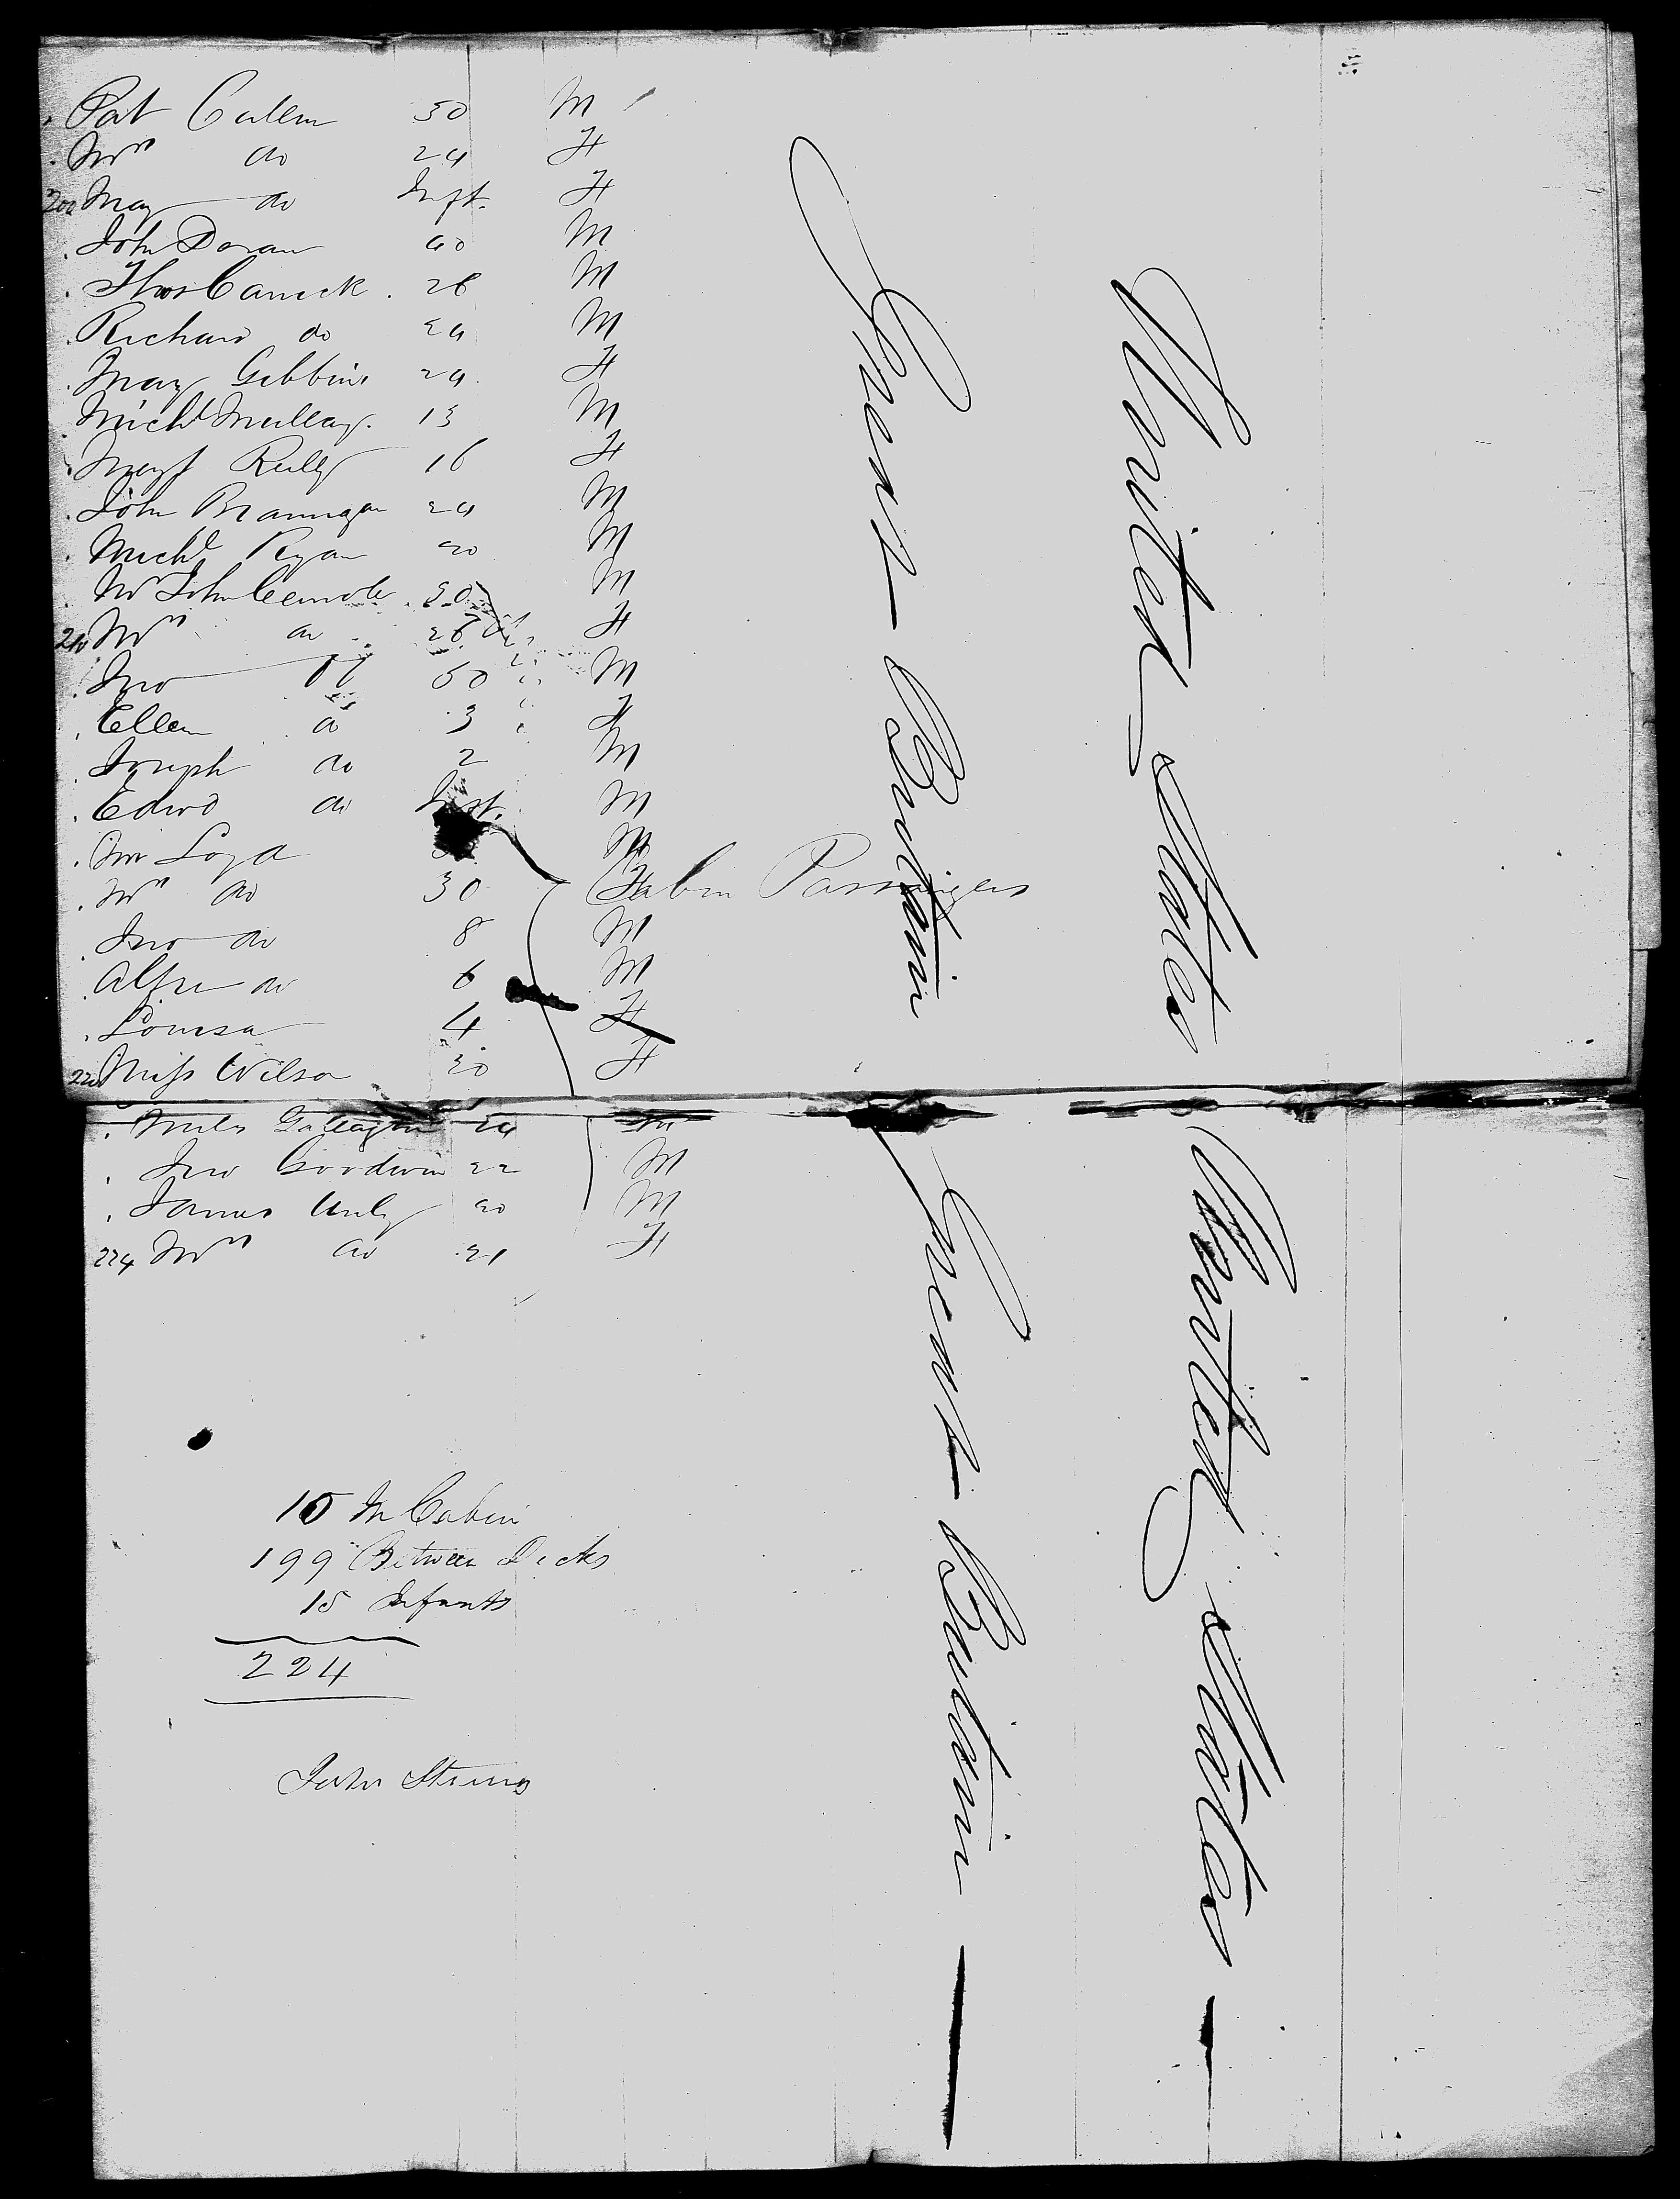 Pat Cullen 30 M
Mrs do 24 F
200 Mary do Inft. F
John Doran 40 M
Thos Carrick 26 M
Richard do 24 M
Mary Gibbins 24 F
Michl Mullay 13 M
Margt Reilly 16 F
John Brannigan 24 M
Michl Ryan 20 M
Mr John 30 M
210 Mrs do 26 F
Jno do M
Ellen do 3 F
Joseph do 2 M
Edwd do Inft. M
Mr Loyd M
Mrs do 30 F
Cabin Passengers
Jno do 8 M
Alfre do 6 M
Louisa 4 F
220 Miss Wilson 30 F
Miles Gallagher 24 M
Jno Goodwin 22 M
James 20 M
224 Mrs do 21 F
Great Britain
United States
Great Britain
United States
10 In Cabin
199 Between Decks
15 Infants
224
John